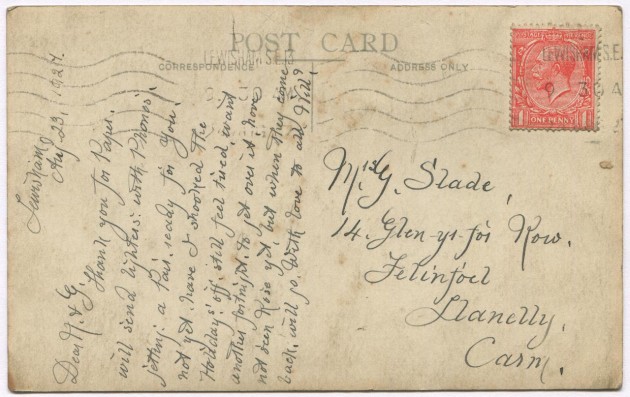 POST CARD
CORRESPONDENCE
ADDRESS ONLY
LEWISHAM S.E.
LEWISHAM S.E.
9 30 A
POSTAGE
REVENUE
1
ONE PENNY
1
Lewisham
Aug 23. 1927.
Dear M. & G.
Thank you for Papers.
will send lighters: with Phones:
getting a Pair ready for you:
not yet have I shooked the
Holidays off, still feel tired, want
another fortnight to get over it, have
not seen Rose yet, but when they come
back, will go. With love to all. Will?
Mrs G. Slade,
14. Glen-yr-for Row.
Felinfoel
Llanelly.
Carm.